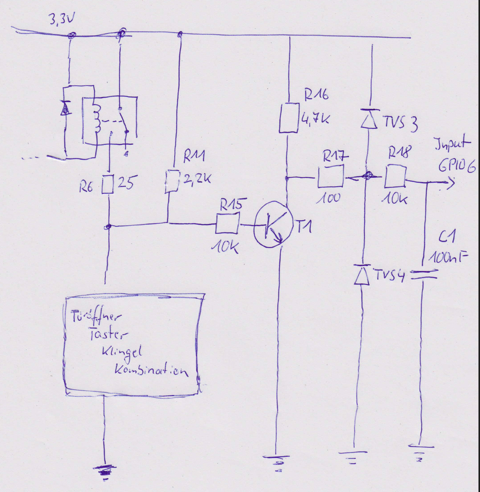 3,3V
R16
4,7K
TVS3
R11
2,2K
R17
100
R18
10K
Input
GPIO6
R6
25
R15
10K
T1
C1
100nF
TVS4
Türöffner
Taster
Klingel
Kombination